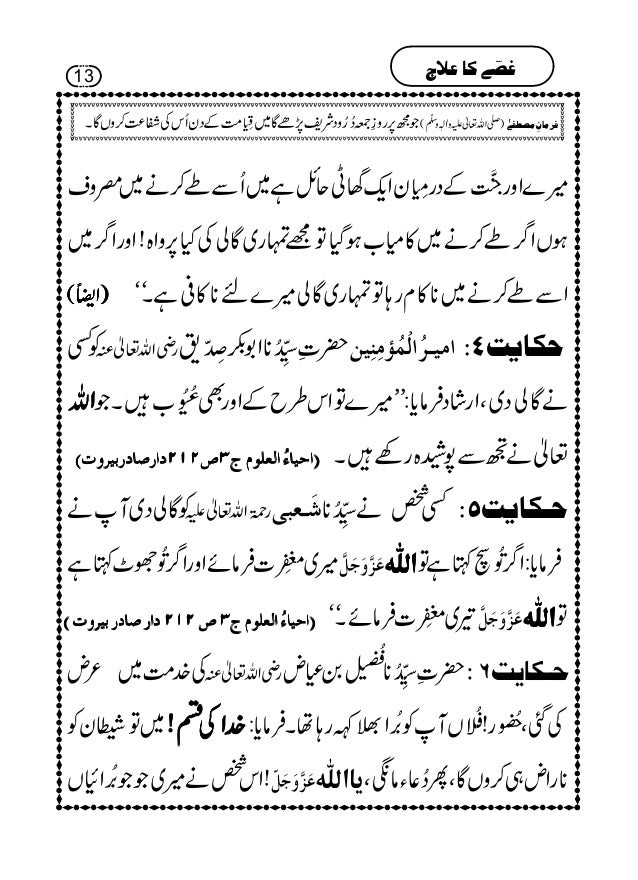 غصّے کا علاج
13
فرمانِ مصطفٰے (صلی اللہ تعالیٰ علیہ والہ وسلم) جو مجھ پر روزِ جمعہ دُرُود شریف پڑھے گا میں قِیامت کے دن اُس کی شفاعت کروں گا۔
میرے اور جنَّت کے درمِیان ایک گھاٹی حائل ہے میں اُسے طے کرنے میں مصروف
ہوں اگر طے کرنے میں کامیاب ہو گیا تو مجھے تمہاری گالی کی کیا پرواہ! اور اگر میں
اسے طے کرنے میں ناکام رہا تو تمہاری گالی میرے لئے ناکافی ہے۔‘‘ (ایضاً)
حکایت٤: امیرُ الْمُؤمِنِین حضرتِ سیِّدُنا ابو بکر صِدّیق رضی اللہ تعالیٰ عنہ کو کسی
نے گالی دی، ارشاد فرمایا:’’میرے تو اس طرح کے اور بھی عُیُوب ہیں۔ جو اللہ
تعالٰی نے تجھ سے پوشیدہ رکھے ہیں۔ (احیاءُ العلوم ج٣ص٢١٢دارصادربیروت)
حکایت٥: کسی شخص نے سیِّدُنا شَعبی رحمۃ اللہ تعالیٰ علیہ کو گالی دی آپ نے
فرمایا: اگر تُو سچ کہتا ہے تو اللہ عَزَّوَجَلَّ میری مغفِرت فرمائے اور اگر تُو جھوٹ کہتا ہے
تو اللہ عَزَّوَجَلَّ تیری مغفِرت فرمائے۔‘‘ (احیاءُ العلوم ج٣ ص ٢١٢ دار صادر بیروت)
حکایت٦: حضرتِ سیِّدُنا فُضیل بن عیاض رضی اللہ تعالیٰ عنہ کی خدمت میں عرض
کی گئی، حُضور! فُلاں آپ کو بُرا بھلا کہہ رہا تھا۔ فرمایا: خدا کی قسم! میں تو شیطان کو
ناراض ہی کروں گا، پھر دُعاء مانگی، یا اللہ عَزَّوَجَلَّ! اس شخص نے میری جو جو بُرائیاں